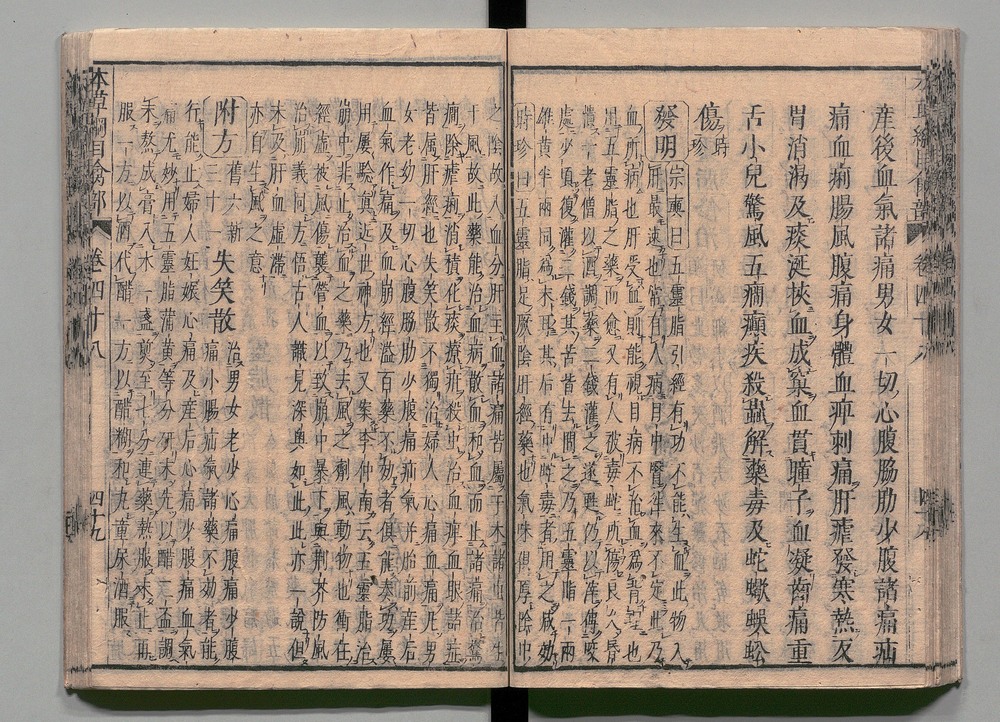 産後血氣諸痛男女一切心腹脇肋少腹諸痛疝
痛血痢腸風腹痛身體血痺刺痛肝瘧發寒熱反
胃消渴及痰涎挾血成窠血貫瞳子血凝齒痛重
舌小兒驚風五癇癲疾殺蟲解藥毒及蛇蠍蜈蚣
傷時珍
發明宗奭曰五靈脂引經有功不能生血此物入
肝最速也嘗有人病目中翳往來不定此乃
血所病也肝受血則能視目病不治血爲背理也
用五靈脂之藥而愈又有人被毒蛇所傷良久昏
憒一老僧以酒調藥二錢灌之遂甦仍以滓傅咬
處少頃復灌二錢其苦皆去問之乃五靈脂一兩
雄黄半兩同爲末耳其后有中蛇毒者用之咸效
時珍曰五靈脂足厥陰肝經藥也氣味俱厚陰中
之陰故入血分肝主血諸痛皆屬于木諸蟲皆生
于風故此藥能治血病散血和血而止諸痛治驚
癇除瘧痢消積化痰療疳殺虫治血痺血眼諸症
皆属肝經也失笑散不獨治婦人心痛血痛凡男
女老幼一切心腹脇肋少腹痛疝氣并胎前産后
血氣作痛及血崩經溢百藥不効者俱能奏功屢
用屢驗真近世神方也又案李仲南云五靈脂治
崩中非止治血之藥乃去風之劑風動物也衝任
經虚被風傷襲營血以致崩中暴下與荆芥防風
治崩義同方悟古人識見深奥如此此亦一說但
未及肝血虚滞
亦自生風之意
附方舊六新三十一失笑散治男女老少心痛腹痛少腹
痛小腸疝氣諸藥不効者能
行能止婦人妊娠心痛及産后心痛少腹痛血氣
痛尤妙用五靈脂蒲黄等分研末先以醋二盃調
末熬成膏入水一盞煎至七分連藥熱服未止再
服一方以酒代醋一方以醋糊和丸童尿酒服
本草綱目禽部
卷四十八
四十九